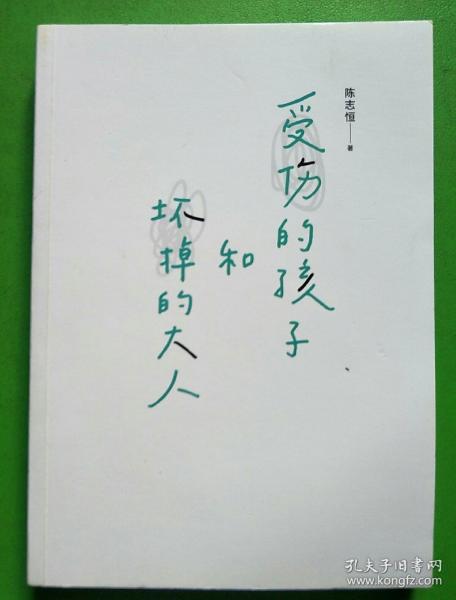 陈志恒——著
受伤的孩子
和
坏掉的大人
孔夫子旧书网
www.kongfz.com